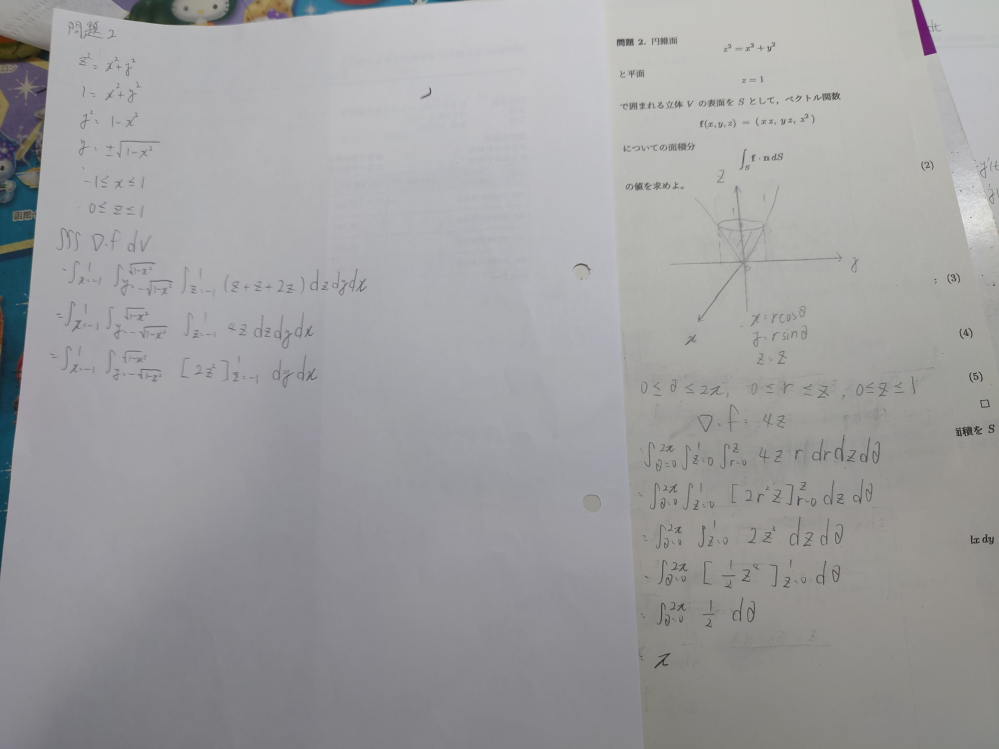 問題 2
z² = x² + y²
1 = x² + y²
y² = 1 - x²
y = ±√(1-x²)
-1 ≤ x ≤ 1
0 ≤ z ≤ 1
∭ ∇·f dV
= ∫_{x=-1}^{1} ∫_{y=-√(1-x²)}^{√(1-x²)} ∫_{z=-1}^{1} (z+z+2z) dz dy dx
= ∫_{x=-1}^{1} ∫_{y=-√(1-x²)}^{√(1-x²)} ∫_{z=-1}^{1} 4z dz dy dx
= ∫_{x=-1}^{1} ∫_{y=-√(1-x²)}^{√(1-x²)} [2z²]_{z=-1}^{1} dy dx
問題 2. 円錐面
z² = x² + y²
と平面
z = 1
で囲まれる立体 V の表面を S として，ベクトル関数
f(x, y, z) = (xz, yz, z²)
についての面積分
∫_S f · n dS
(2)
の値を求めよ。
z
y
x
x = r cosθ
y = r sinθ
z = z
0 ≤ θ ≤ 2π, 0 ≤ r ≤ z, 0 ≤ z ≤ 1
∇·f = 4z
∫_{θ=0}^{2π} ∫_{z=0}^{1} ∫_{r=0}^{z} 4z r dr dz dθ
= ∫_{θ=0}^{2π} ∫_{z=0}^{1} [2r²z]_{r=0}^{z} dz dθ
= ∫_{θ=0}^{2π} ∫_{z=0}^{1} 2z³ dz dθ
= ∫_{θ=0}^{2π} [½z⁴]_{z=0}^{1} dθ
= ∫_{θ=0}^{2π} ½ dθ
= π
: (3)
(4)
(5)
□
面積を S
dx dy